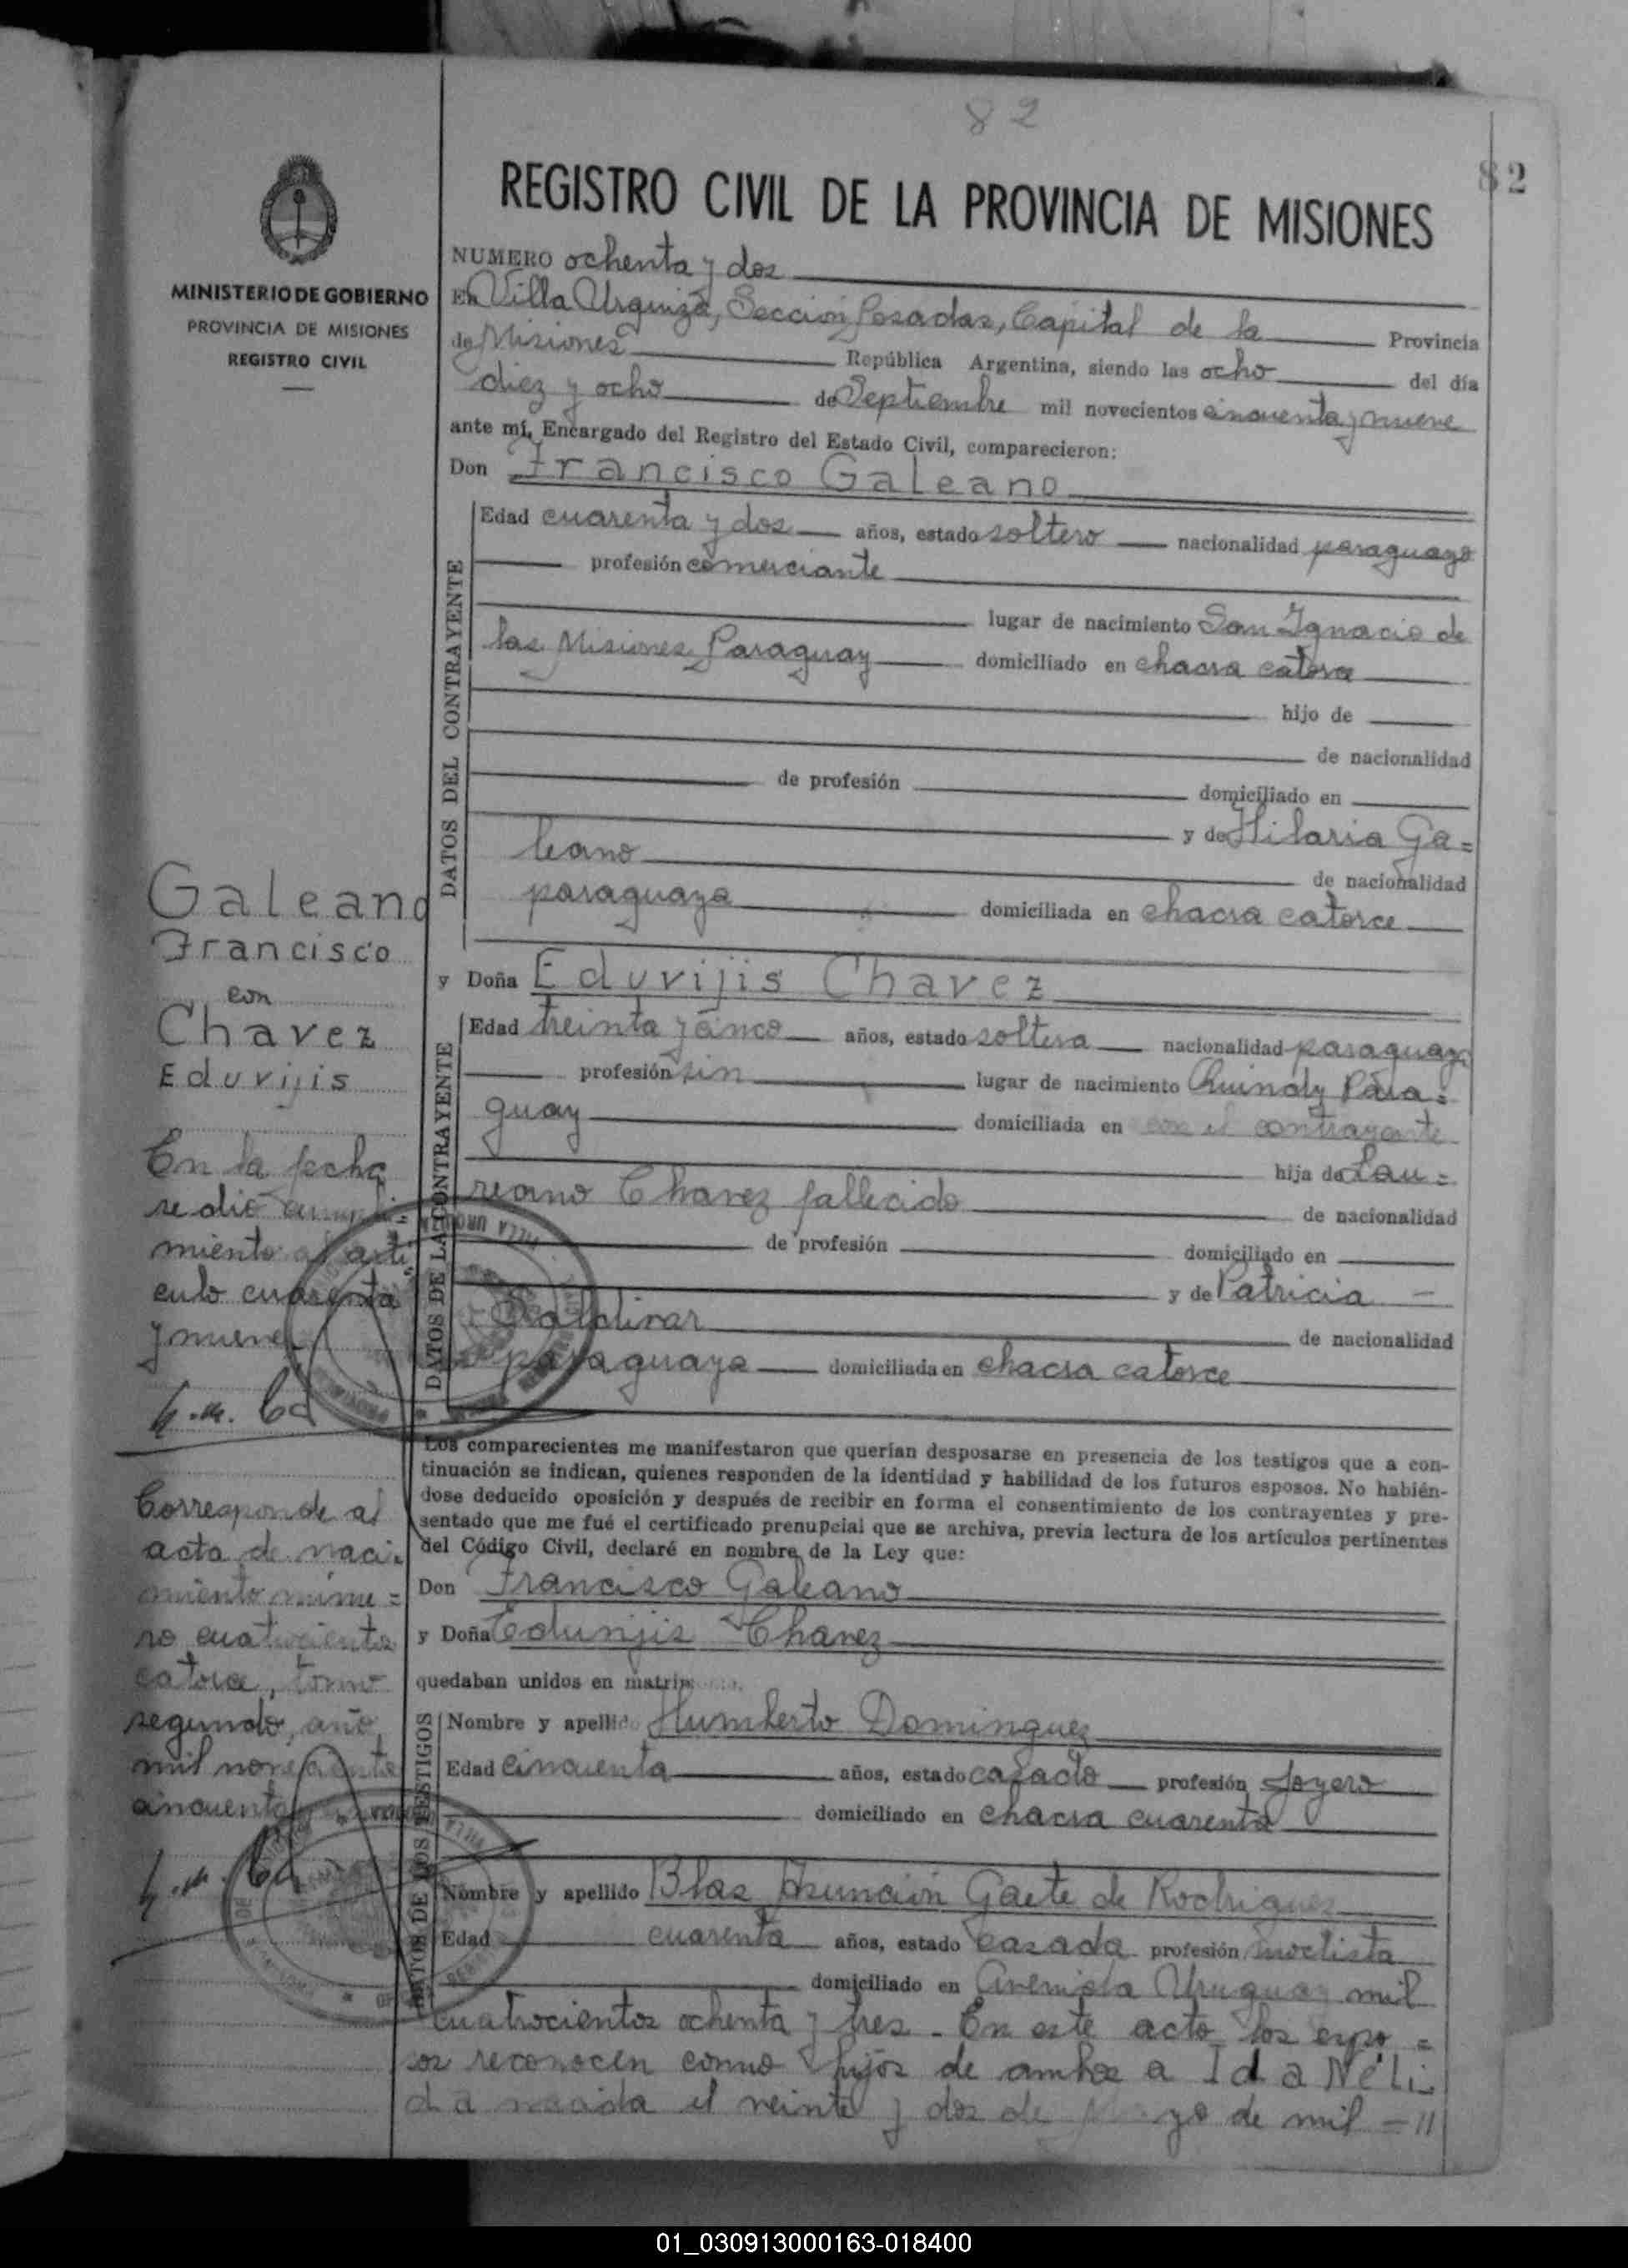 82
82
REGISTRO CIVIL DE LA PROVINCIA DE MISIONES
MINISTERIO DE GOBIERNO
PROVINCIA DE MISIONES
REGISTRO CIVIL
NUMERO ochenta y dos
En Villa Urquiza, Sección Posadas, Capital de la Provincia
de Misiones República Argentina, siendo las ocho del día
diez y ocho de Septiembre mil novecientos cincuenta y nueve
ante mí, Encargado del Registro del Estado Civil, comparecieron:
Don Francisco Galeano
DATOS DEL CONTRAYENTE
Edad cuarenta y dos años, estado soltero nacionalidad paraguayo
profesión comerciante
lugar de nacimiento San Ignacio de
las Misiones Paraguay domiciliado en chacra catorce
hijo de
de nacionalidad
de profesión domiciliado en
y de Hilaria Ga=
leano
de nacionalidad
paraguaya domiciliada en chacra catorce
y Doña Eduvijis Chavez
DATOS DE LA CONTRAYENTE
Edad treinta y cinco años, estado soltera nacionalidad paraguaya
profesión sin lugar de nacimiento Quindy Para=
guay domiciliada en con el contrayente
hija de Lau=
reano Chavez fallecido de nacionalidad
de profesión domiciliado en
y de Patricia
Baldivar de nacionalidad
paraguaya domiciliada en chacra catorce
Los comparecientes me manifestaron que querían desposarse en presencia de los testigos que a con-
tinuación se indican, quienes responden de la identidad y habilidad de los futuros esposos. No habién-
dose deducido oposición y después de recibir en forma el consentimiento de los contrayentes y pre-
sentado que me fué el certificado prenupcial que se archiva, previa lectura de los artículos pertinentes
del Código Civil, declaré en nombre de la Ley que:
Don Francisco Galeano
y Doña Eduvijis Chavez
quedaban unidos en matrim
DATOS DE LOS TESTIGOS
Nombre y apellido Humberto Dominguez
Edad cincuenta años, estado casado profesión Joyero
domiciliado en chacra cuarenta
Nombre y apellido Blas Asunción Gaete de Rodriguez
Edad cuarenta años, estado casada profesión modista
domiciliado en Avenida Uruguay mil
cuatrocientos ochenta y tres - En este acto los espo=
sos reconocen como hijos de ambos a Ida Neli-
da nacida el veinte y dos de Mayo de mil = //
Galeano
Francisco
con
Chavez
Eduvijis
En la fecha
se dió cumpli=
miento al arti
culo cuarenta
y nueve
Corresponde al
acta de naci=
miento núme=
ro cuatrocientos
catorce, tomo
segundo, año
mil novecientos
cincuenta
01_030913000163-018400